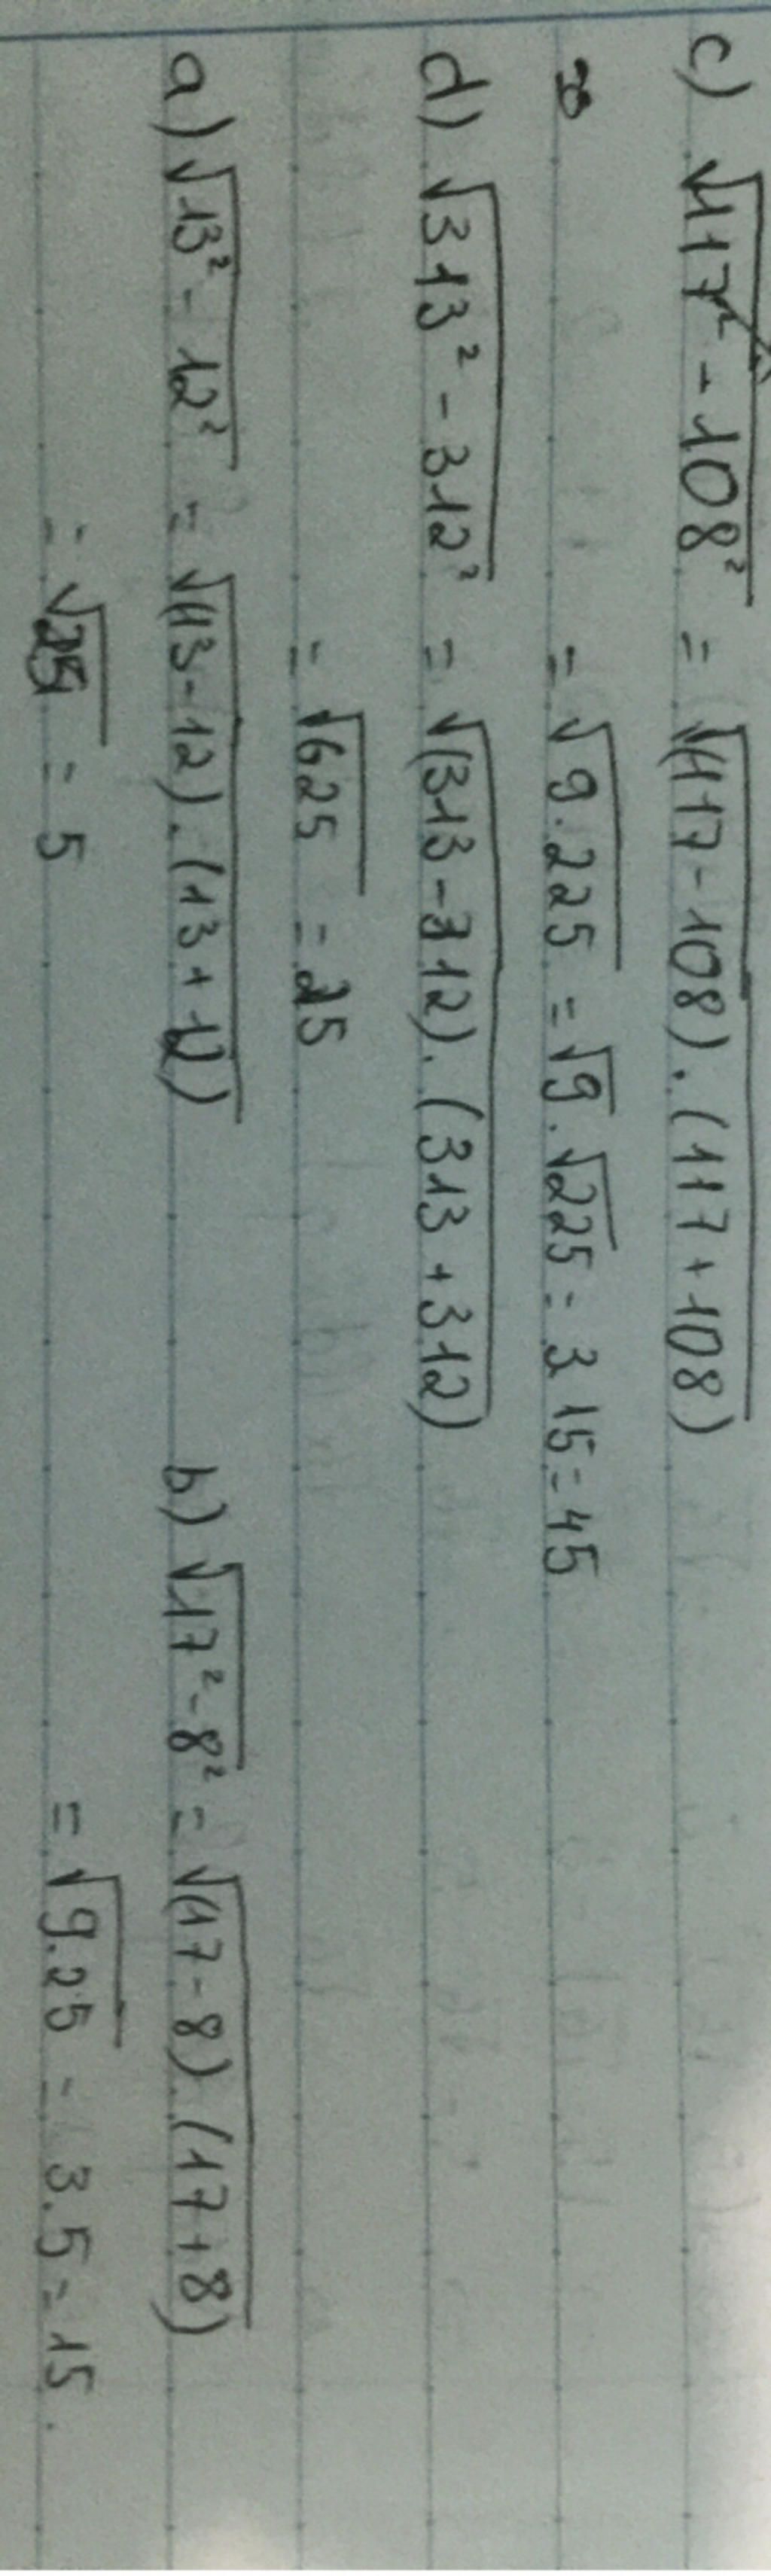 c) √117² - 108² = √(117-108).(117+108)
= √9.225 = √9.√225 = 3.15 = 45
d) √313² - 312² = √(313-312).(313+312)
= √625 = 25
a) √13² - 12² = √(13-12).(13+12) b) √17²-8² = √(17-8).(17+8)
= √25 = 5 = √9.25 = 3.5 = 15.